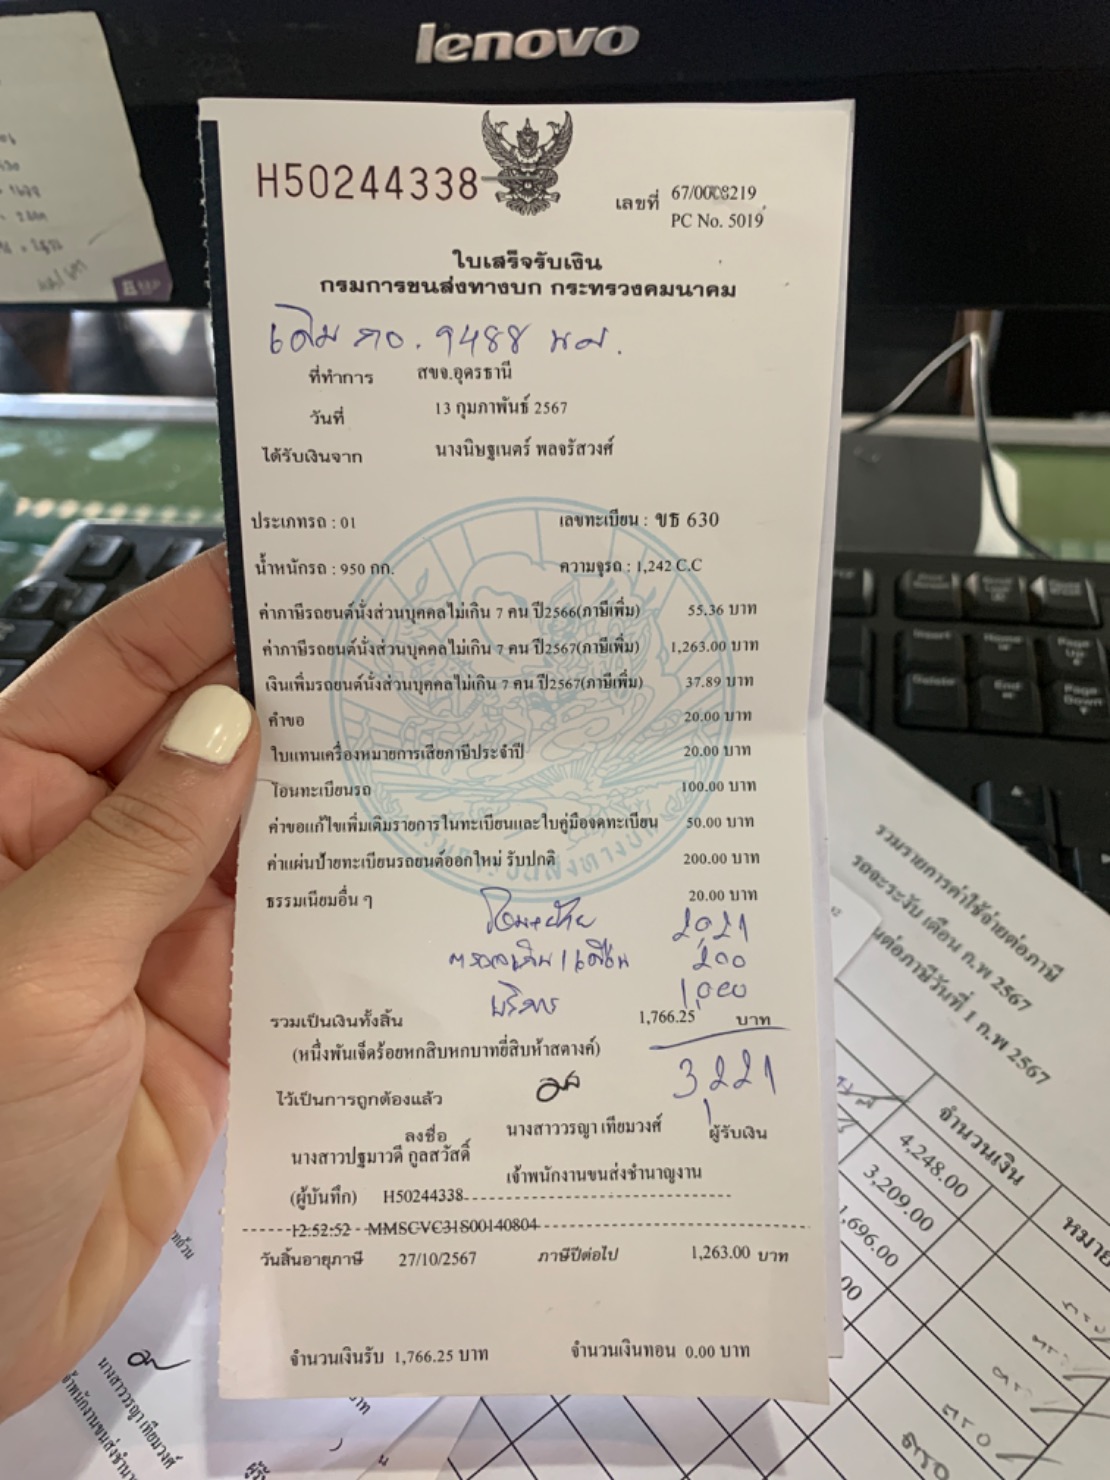 lenovo
H50244338
เลขที่ 67/0008219
PC No. 5019
ใบเสร็จรับเงิน
กรมการขนส่งทางบก กระทรวงคมนาคม
เดิม กอ. 9488 นม.
ที่ทำการ สขจ.อุดรธานี
วันที่ 13 กุมภาพันธ์ 2567
ได้รับเงินจาก นางนิษฐเนตร์ พลจรัสวงศ์
ประเภทรถ : 01 เลขทะเบียน : ขธ 630
น้ำหนักรถ : 950 กก. ความจุรถ : 1,242 C.C
ค่าภาษีรถยนต์นั่งส่วนบุคคลไม่เกิน 7 คน ปี2566(ภาษีเพิ่ม) 55.36 บาท
ค่าภาษีรถยนต์นั่งส่วนบุคคลไม่เกิน 7 คน ปี2567(ภาษีเพิ่ม) 1,263.00 บาท
เงินเพิ่มรถยนต์นั่งส่วนบุคคลไม่เกิน 7 คน ปี2567(ภาษีเพิ่ม) 37.89 บาท
คำขอ 20.00 บาท
ใบแทนเครื่องหมายการเสียภาษีประจำปี 20.00 บาท
โอนทะเบียนรถ 100.00 บาท
ค่าขอแก้ไขเพิ่มเติมรายการในทะเบียนและใบคู่มือจดทะเบียน 50.00 บาท
ค่าแผ่นป้ายทะเบียนรถยนต์ออกใหม่ รับปกติ 200.00 บาท
ธรรมเนียมอื่น ๆ 20.00 บาท
โอน+ย้าย 2,021
200
บริการ 1,000
รวมเป็นเงินทั้งสิ้น 1,766.25 บาท
(หนึ่งพันเจ็ดร้อยหกสิบหกบาทยี่สิบห้าสตางค์)
3,221
ไว้เป็นการถูกต้องแล้ว
ลงชื่อ นางสาววรญา เทียมวงศ์ ผู้รับเงิน
นางสาวปฐมาวดี กูลสวัสดิ์
เจ้าพนักงานขนส่งชำนาญงาน
(ผู้บันทึก) H50244338
12:52:52 MMSCVC31S00140804
วันสิ้นอายุภาษี 27/10/2567 ภาษีปีต่อไป 1,263.00 บาท
จำนวนเงินรับ 1,766.25 บาท จำนวนเงินทอน 0.00 บาท
รวมรายการค่าใช้จ่ายต่อภาษี
รถจะระงับ เดือน ก.พ 2567
นต่อภาษีวันที่ 1 ก.พ 2567
จำนวนเงิน
หมาย
4,248.00
3,209.00
,696.00
00
Insert
Home
Page Up
Delete
End
Page Down
นางสาววรญา เทียมวงศ์